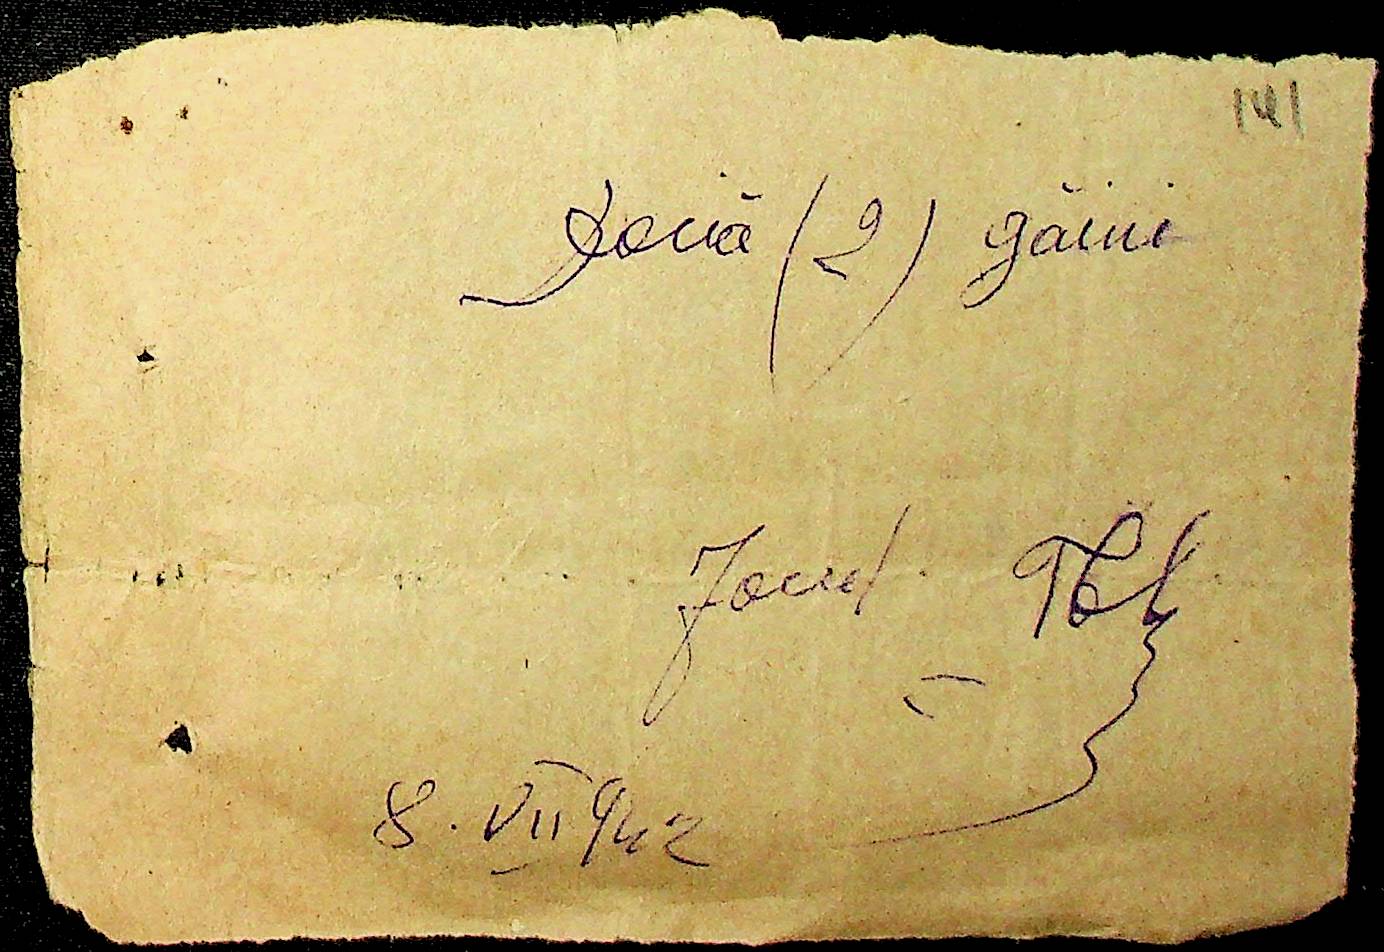 141
Două (2) găini
8. VII 942